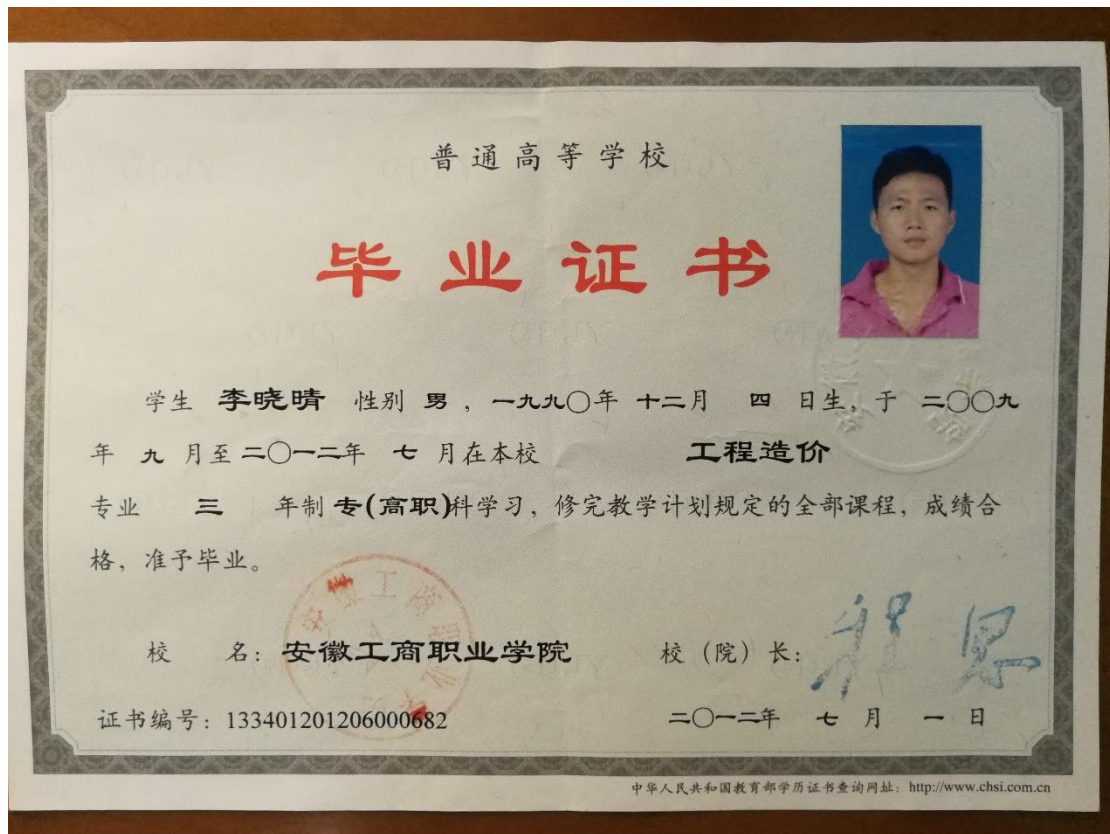 普通高等学校
毕业证书
学生 李晓晴 性别 男，一九九〇年 十二月 四 日生，于 二〇〇九
年 九 月至 二〇一二年 七 月在本校 工程造价
专业 三 年制 专(高职)科学习，修完教学计划规定的全部课程，成绩合
格，准予毕业。
校 名：安徽工商职业学院 校（院）长：
证书编号：133401201206000682 二〇一二年 七 月 一 日
中华人民共和国教育部学历证书查询网址：http://www.chsi.com.cn